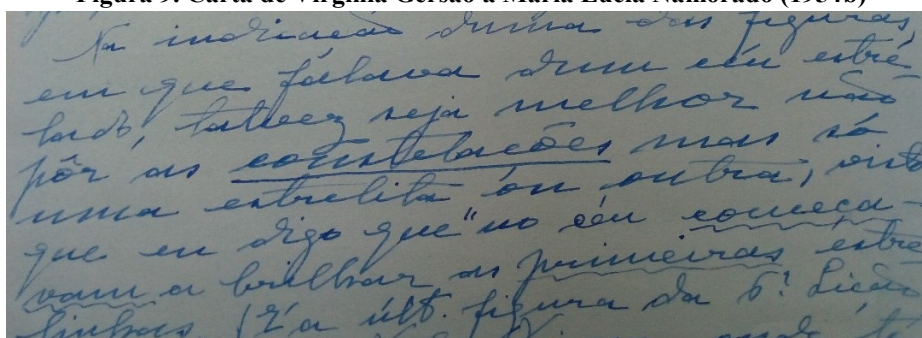 Figura 9. Carta de Virgínia Gersão a Maria Lúcia Namorado (1954b)
Na indicação duma das figuras,
em que falava dum céu estre-
lado, talvez seja melhor não
pôr as constelações mas só
uma estrelita ou outra, visto
que eu digo que "no céu começa-
vam a brilhar as primeiras estre
linhas (É a últ. figura da 6ª Lição